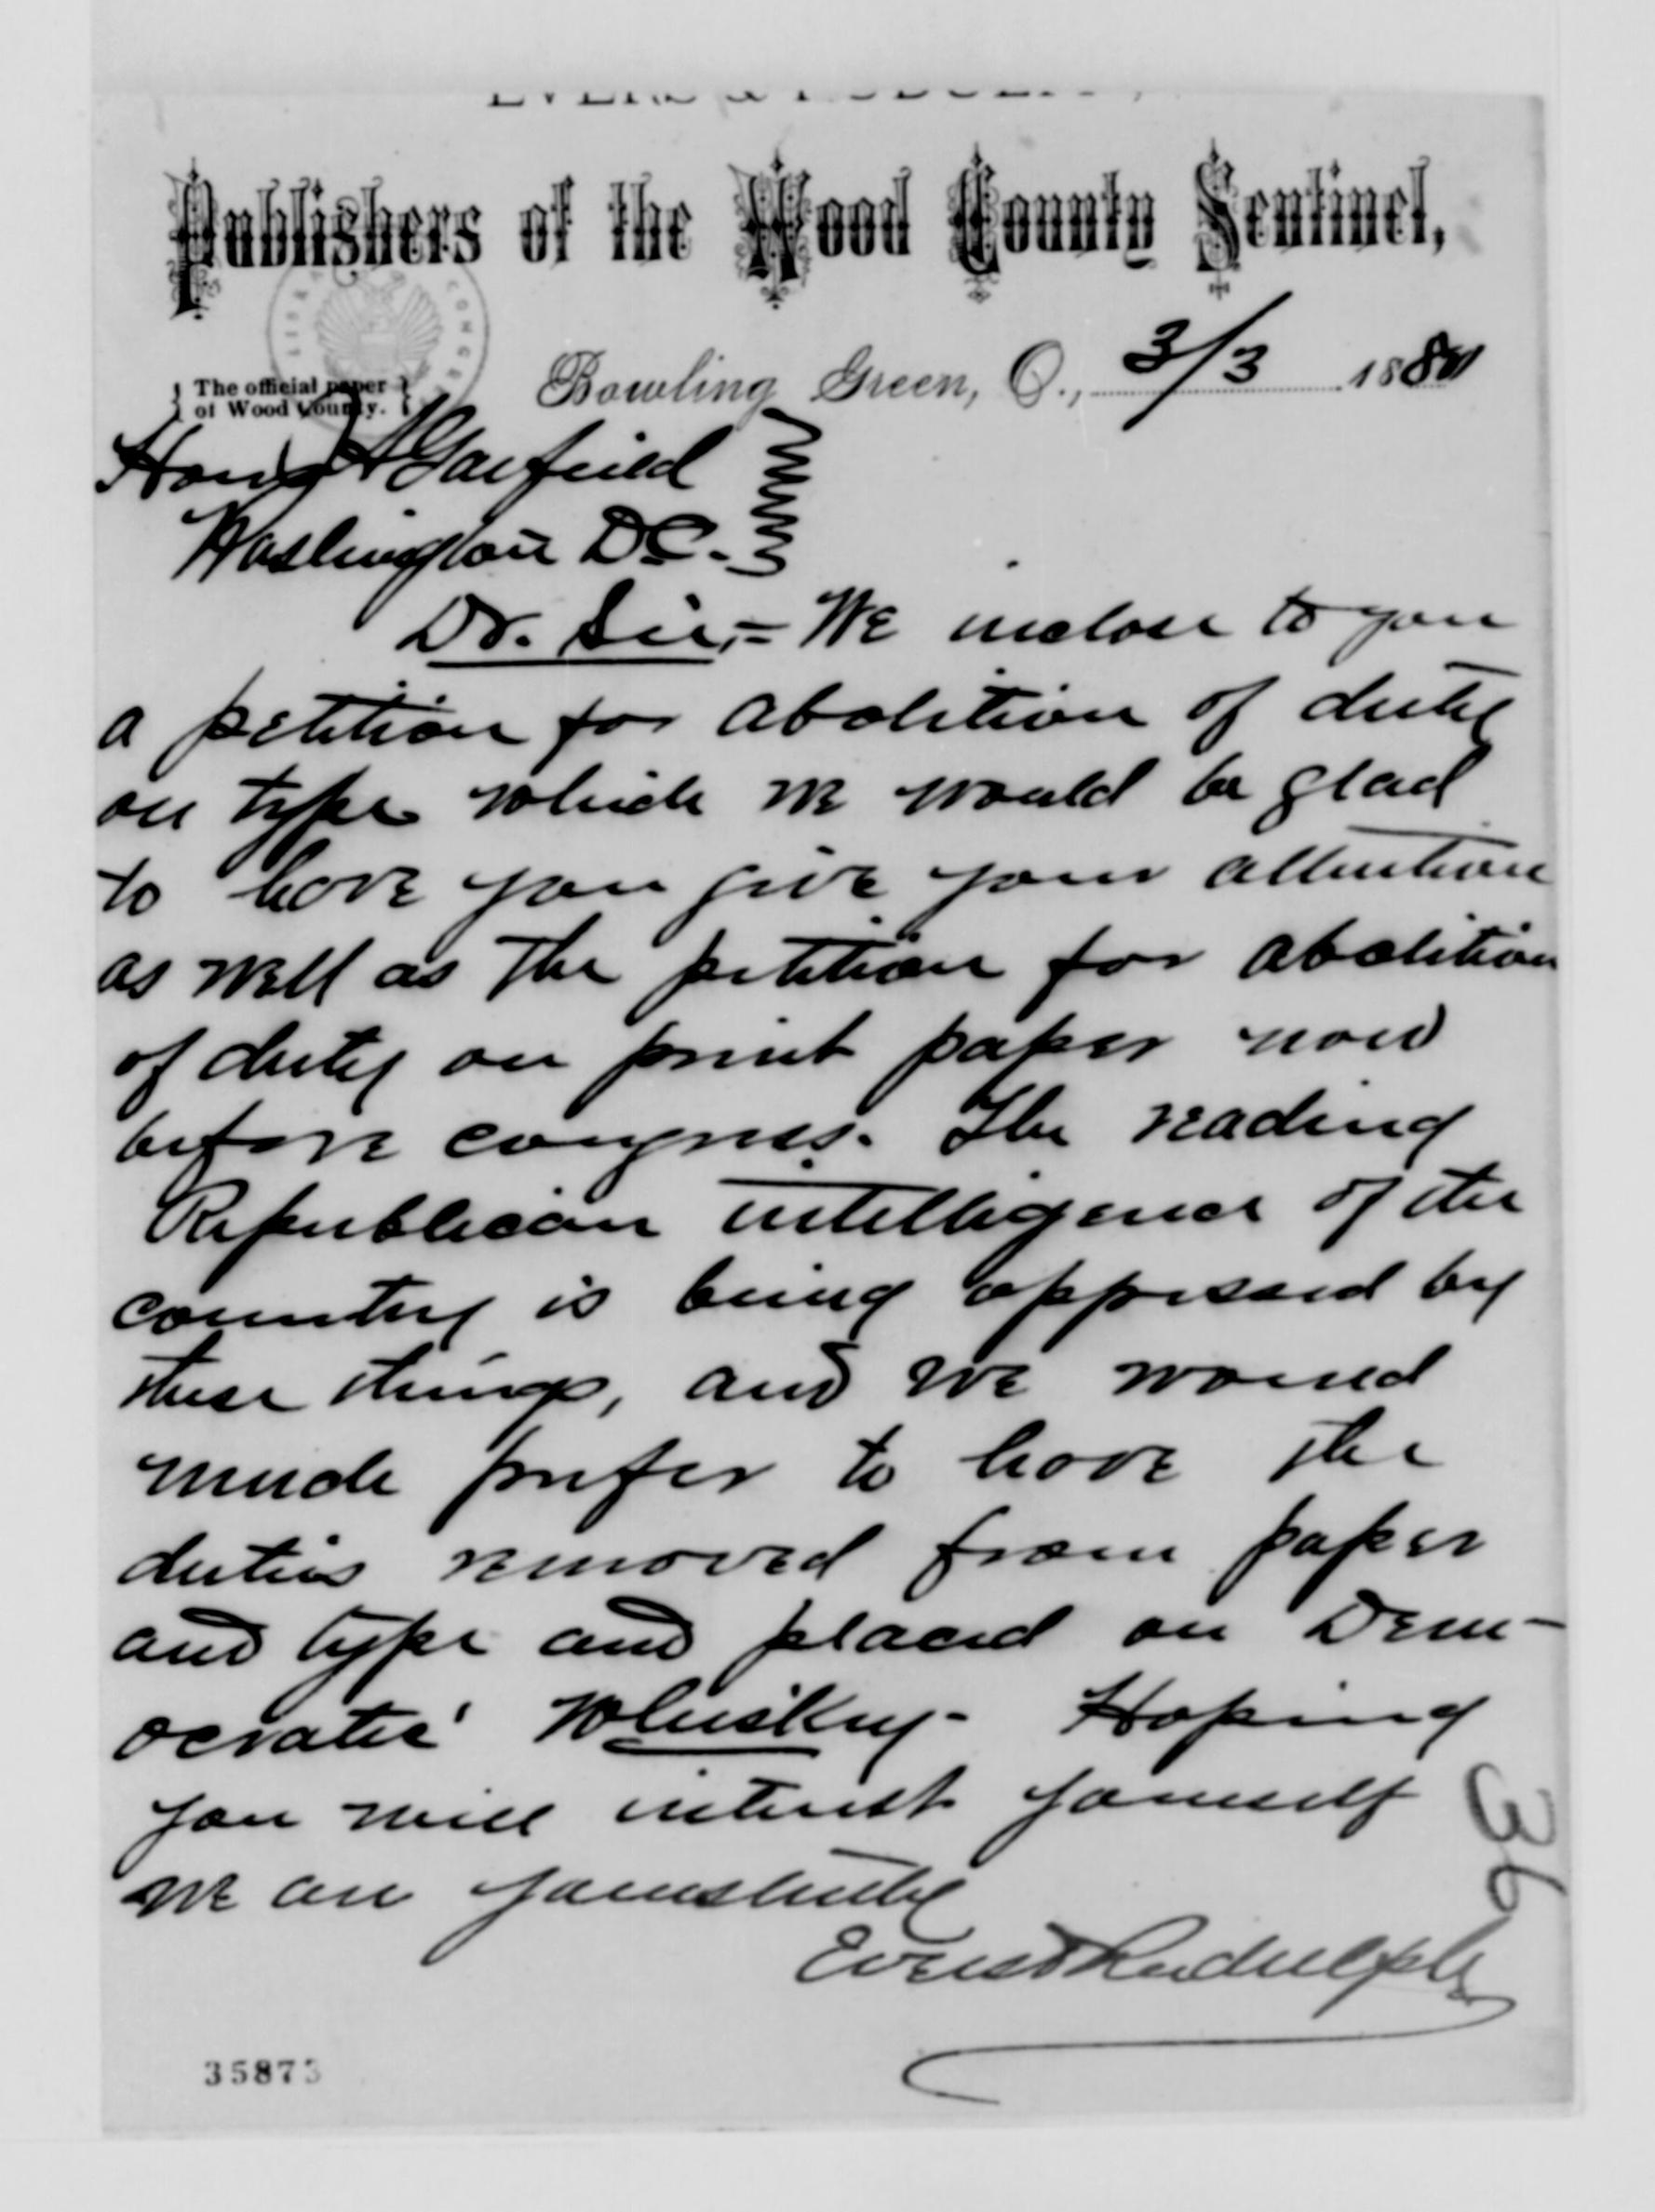 Publishers of the Wood County Sentinel,
The official paper
of Wood County.
Bowling Green, O., 3/3 1880
Hon J A Garfield
Washington DC.
Dr. Sir,- We inclose to you
a petition for abolition of duty
on type which we would be glad
to have you give your attention
as well as the petition for abolition
of duty on print paper now
before congress. The reading
Republican intelligence of the
country is being oppressed by
these things, and we would
much prefer to have the
duties removed from paper
and type and placed on Dem-
ocratic Whiskey- Hoping
you will interest yourself
we are yours truly
Evers & Rudulph
36
35873